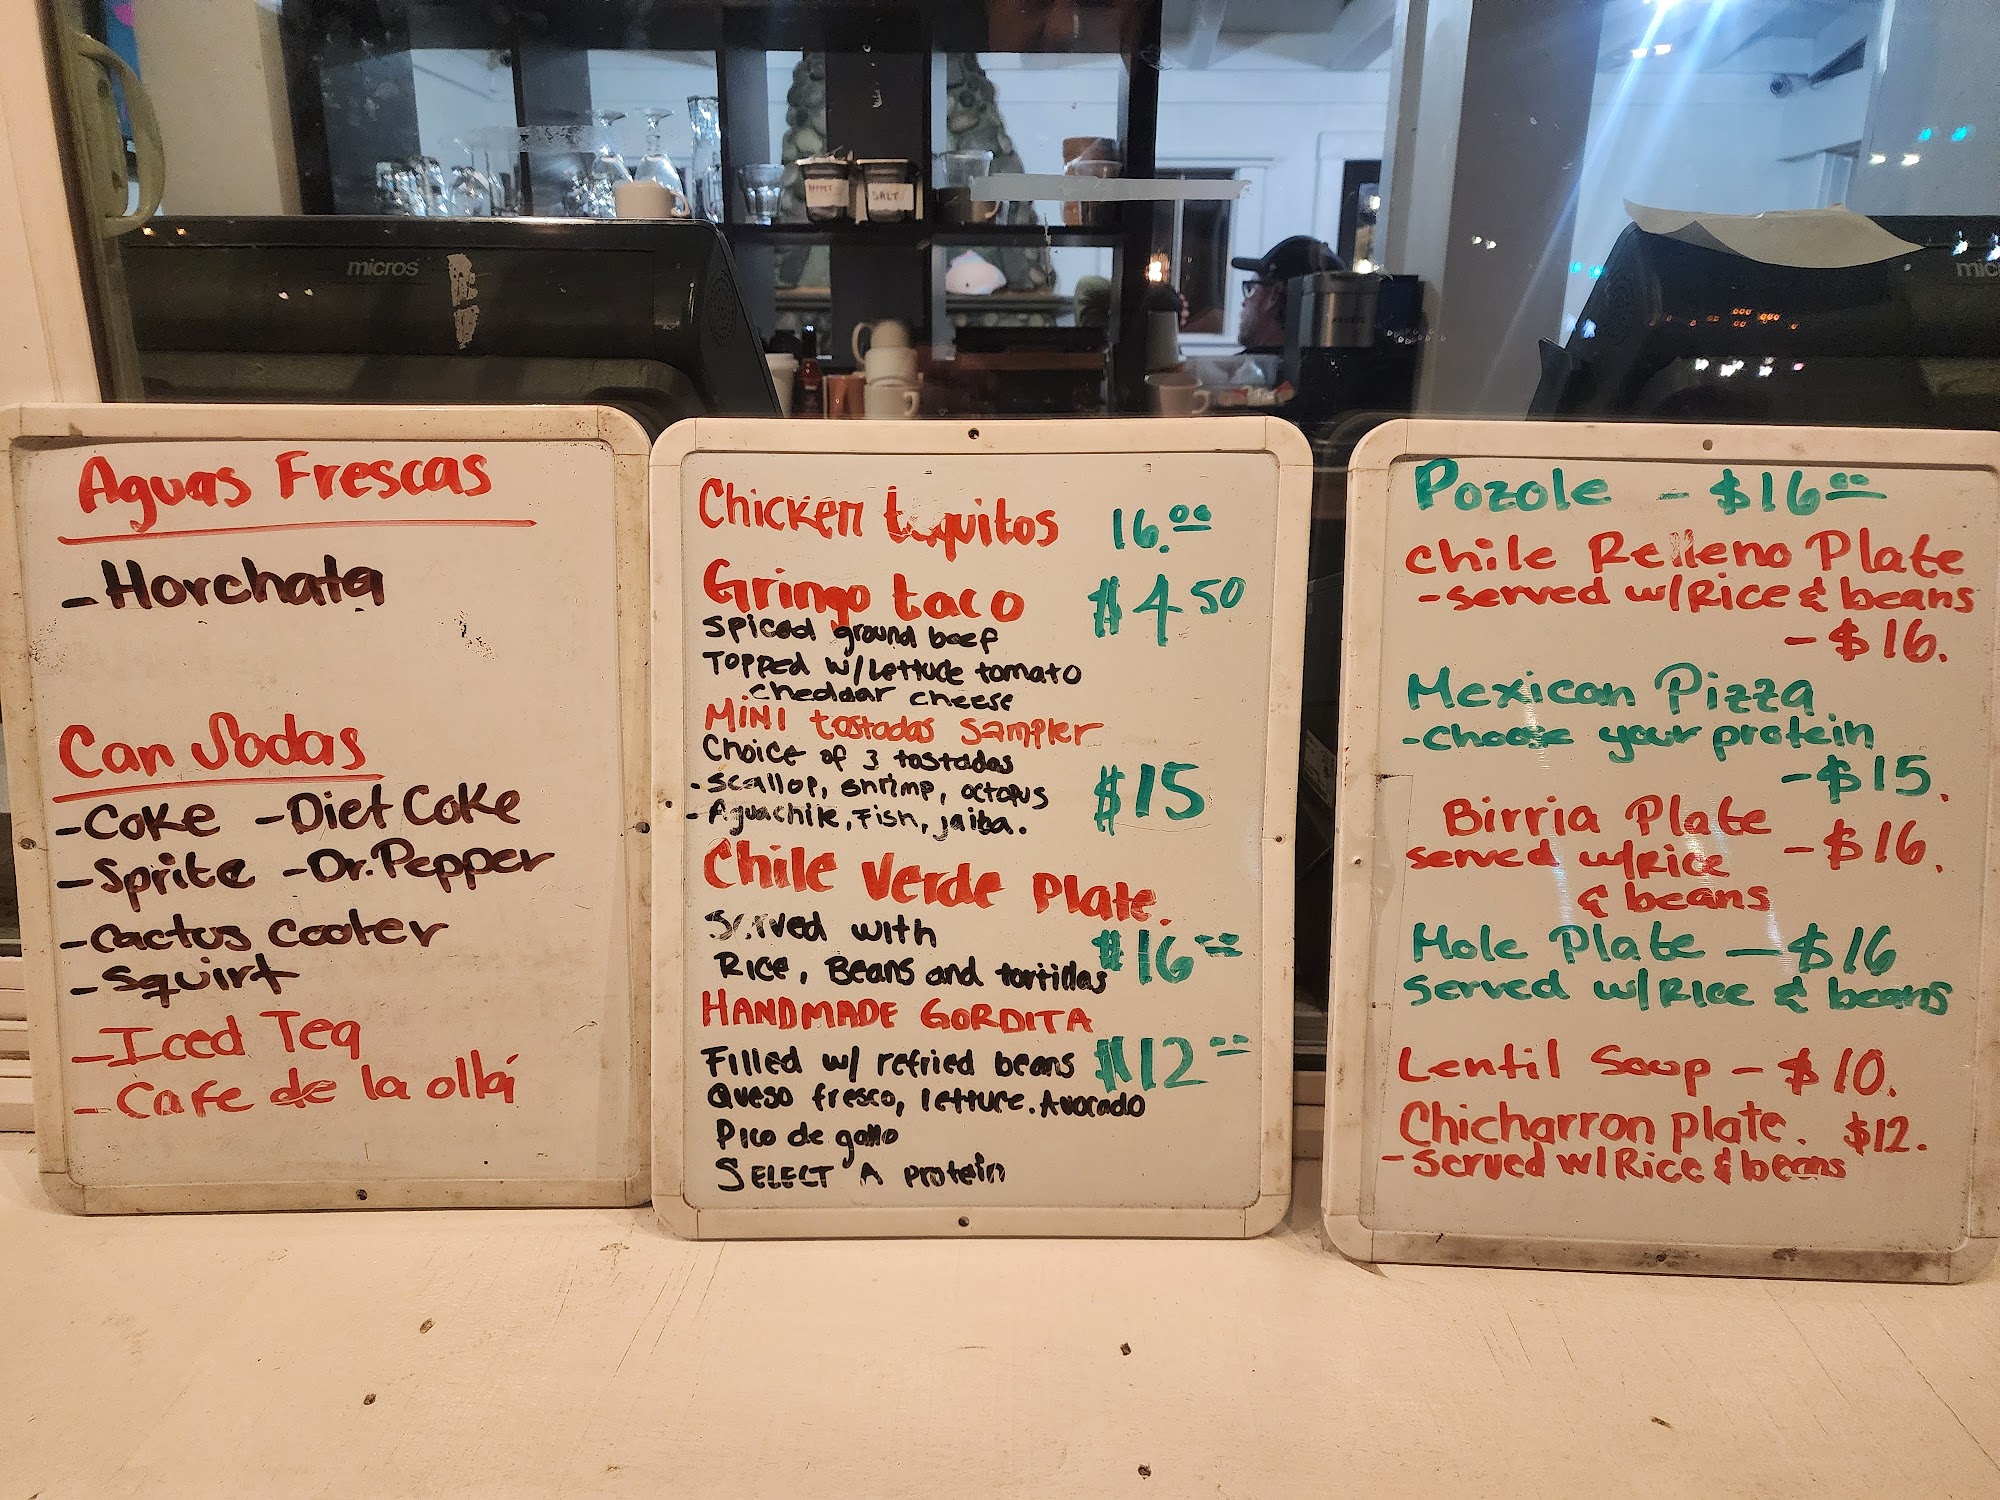 micros
PEPPET
SALT
Aguas Frescas
- Horchata
Can Sodas
- Coke - Diet Coke
- Sprite - Dr. Pepper
- Cactus Cooler
- Squirt
- Iced Tea
- Cafe de la olla
Chicken taquitos 16.00
Gringo taco $4 50
Spiced ground beef
Topped w/ Lettuce tomato
cheddar cheese
MINI tostadas sampler
Choice of 3 tostadas
- Scallop, shrimp, octopus $15
- Aguachile, Fish, jaiba.
Chile Verde Plate.
Served with
Rice, Beans and tortillas $16 00
HANDMADE GORDITA
Filled w/ refried beans $12 00
Queso fresco, lettuce. Avocado
Pico de gallo
SELECT A protein
Pozole - $16 00
Chile Relleno Plate
- served w/ Rice & beans
- $16.
Mexican Pizza
- choose your protein
- $15.
Birria Plate
served w/ rice - $16.
& beans
Mole Plate - $16
Served w/ Rice & beans
Lentil Soup - $10.
Chicharron plate. $12.
- Served w/ Rice & beans